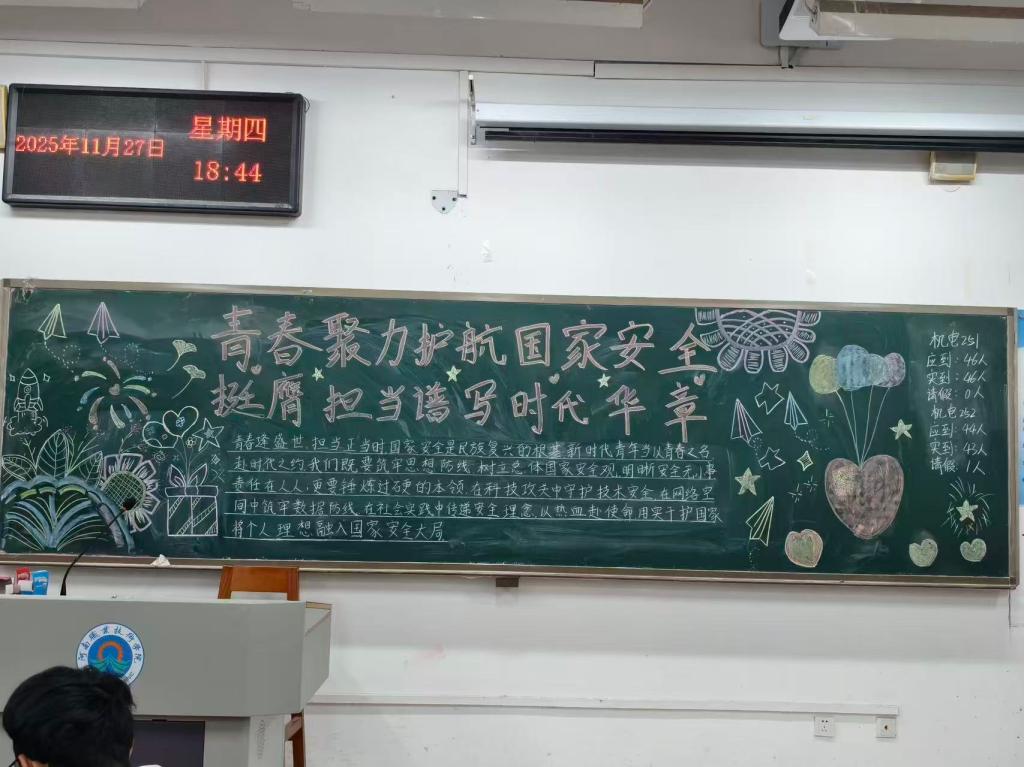 星期四
2025年11月27日
18:44
青春聚力护航国家安全
挺膺担当谱写时代华章
青春逢盛世担当正当时国家安全是民族复兴的根基新时代青年当以青春之名
赴时代之约我们既要筑牢思想防线树立总体国家安全观明晰安全无小事
责任在人人更要锤炼过硬的本领在科技攻关中守护技术安全在网络空
间中筑牢数据防线在社会实践中传递安全理念以热血赴使命用实干护国家
将个人理想融入国家安全大局
机电251
应到:46人
实到:46人
请假:0人
机电252
应到:44人
实到:43人
请假:1人
河南职业技术学院